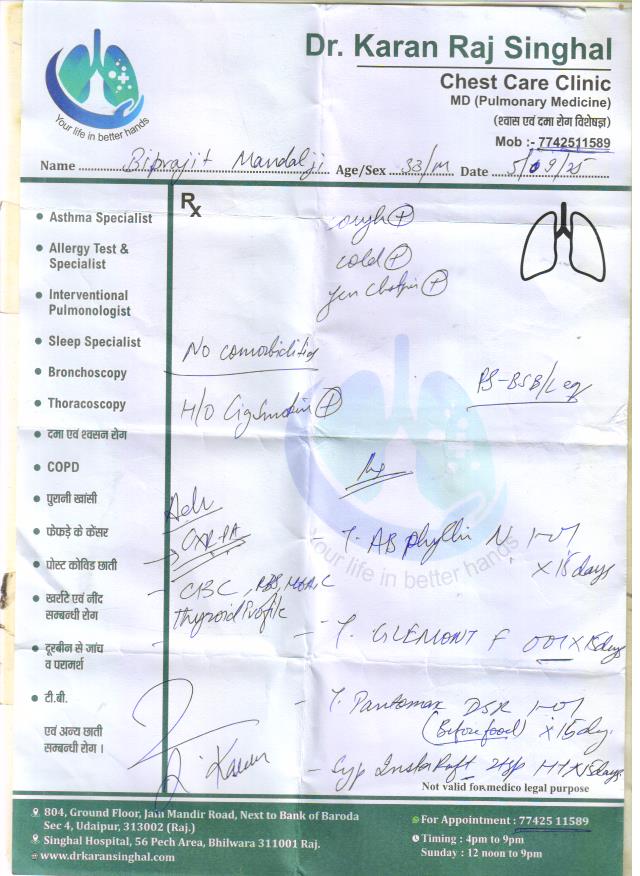 Dr. Karan Raj Singhal
Chest Care Clinic
MD (Pulmonary Medicine)
(श्वास एवं दमा रोग विशेषज्ञ)
Mob :- 7742511589
Your life in better hands
Name Biprajit Mandalji Age/Sex 33/M Date 5/09/25
Rx
• Asthma Specialist
• Allergy Test & Specialist
• Interventional Pulmonologist
• Sleep Specialist
• Bronchoscopy
• Thoracoscopy
• दमा एवं श्वसन रोग
• COPD
• पुरानी खांसी
• फेफड़े के कैंसर
• पोस्ट कोविड छाती
• खर्राटे एवं नींद सम्बन्धी रोग
• दूरबीन से जांच व परामर्श
• टी.बी.
एवं अन्य छाती सम्बन्धी रोग ।
cough (+)
cold (+)
(+)
No comorbidities
H/O Cig Smoking (+)
Rx
Adv
CXR-PA
- CBC, RBS, HbA1C
Thyroid Profile
- T. AB phyllin N 1-0-1
x 15 days
- T. GLEMONT F 001 x 15days
- T. Pantomax DSR 1-0-1
(Before food) x 15day.
- Syp Insta Raft 2tsp x 15days
Karan
Your life in better hands
Not valid for medico legal purpose
804, Ground Floor, Jain Mandir Road, Next to Bank of Baroda
Sec 4, Udaipur, 313002 (Raj.)
Singhal Hospital, 56 Pech Area, Bhilwara 311001 Raj.
www.drkaransinghal.com
For Appointment : 77425 11589
Timing : 4pm to 9pm
Sunday : 12 noon to 9pm